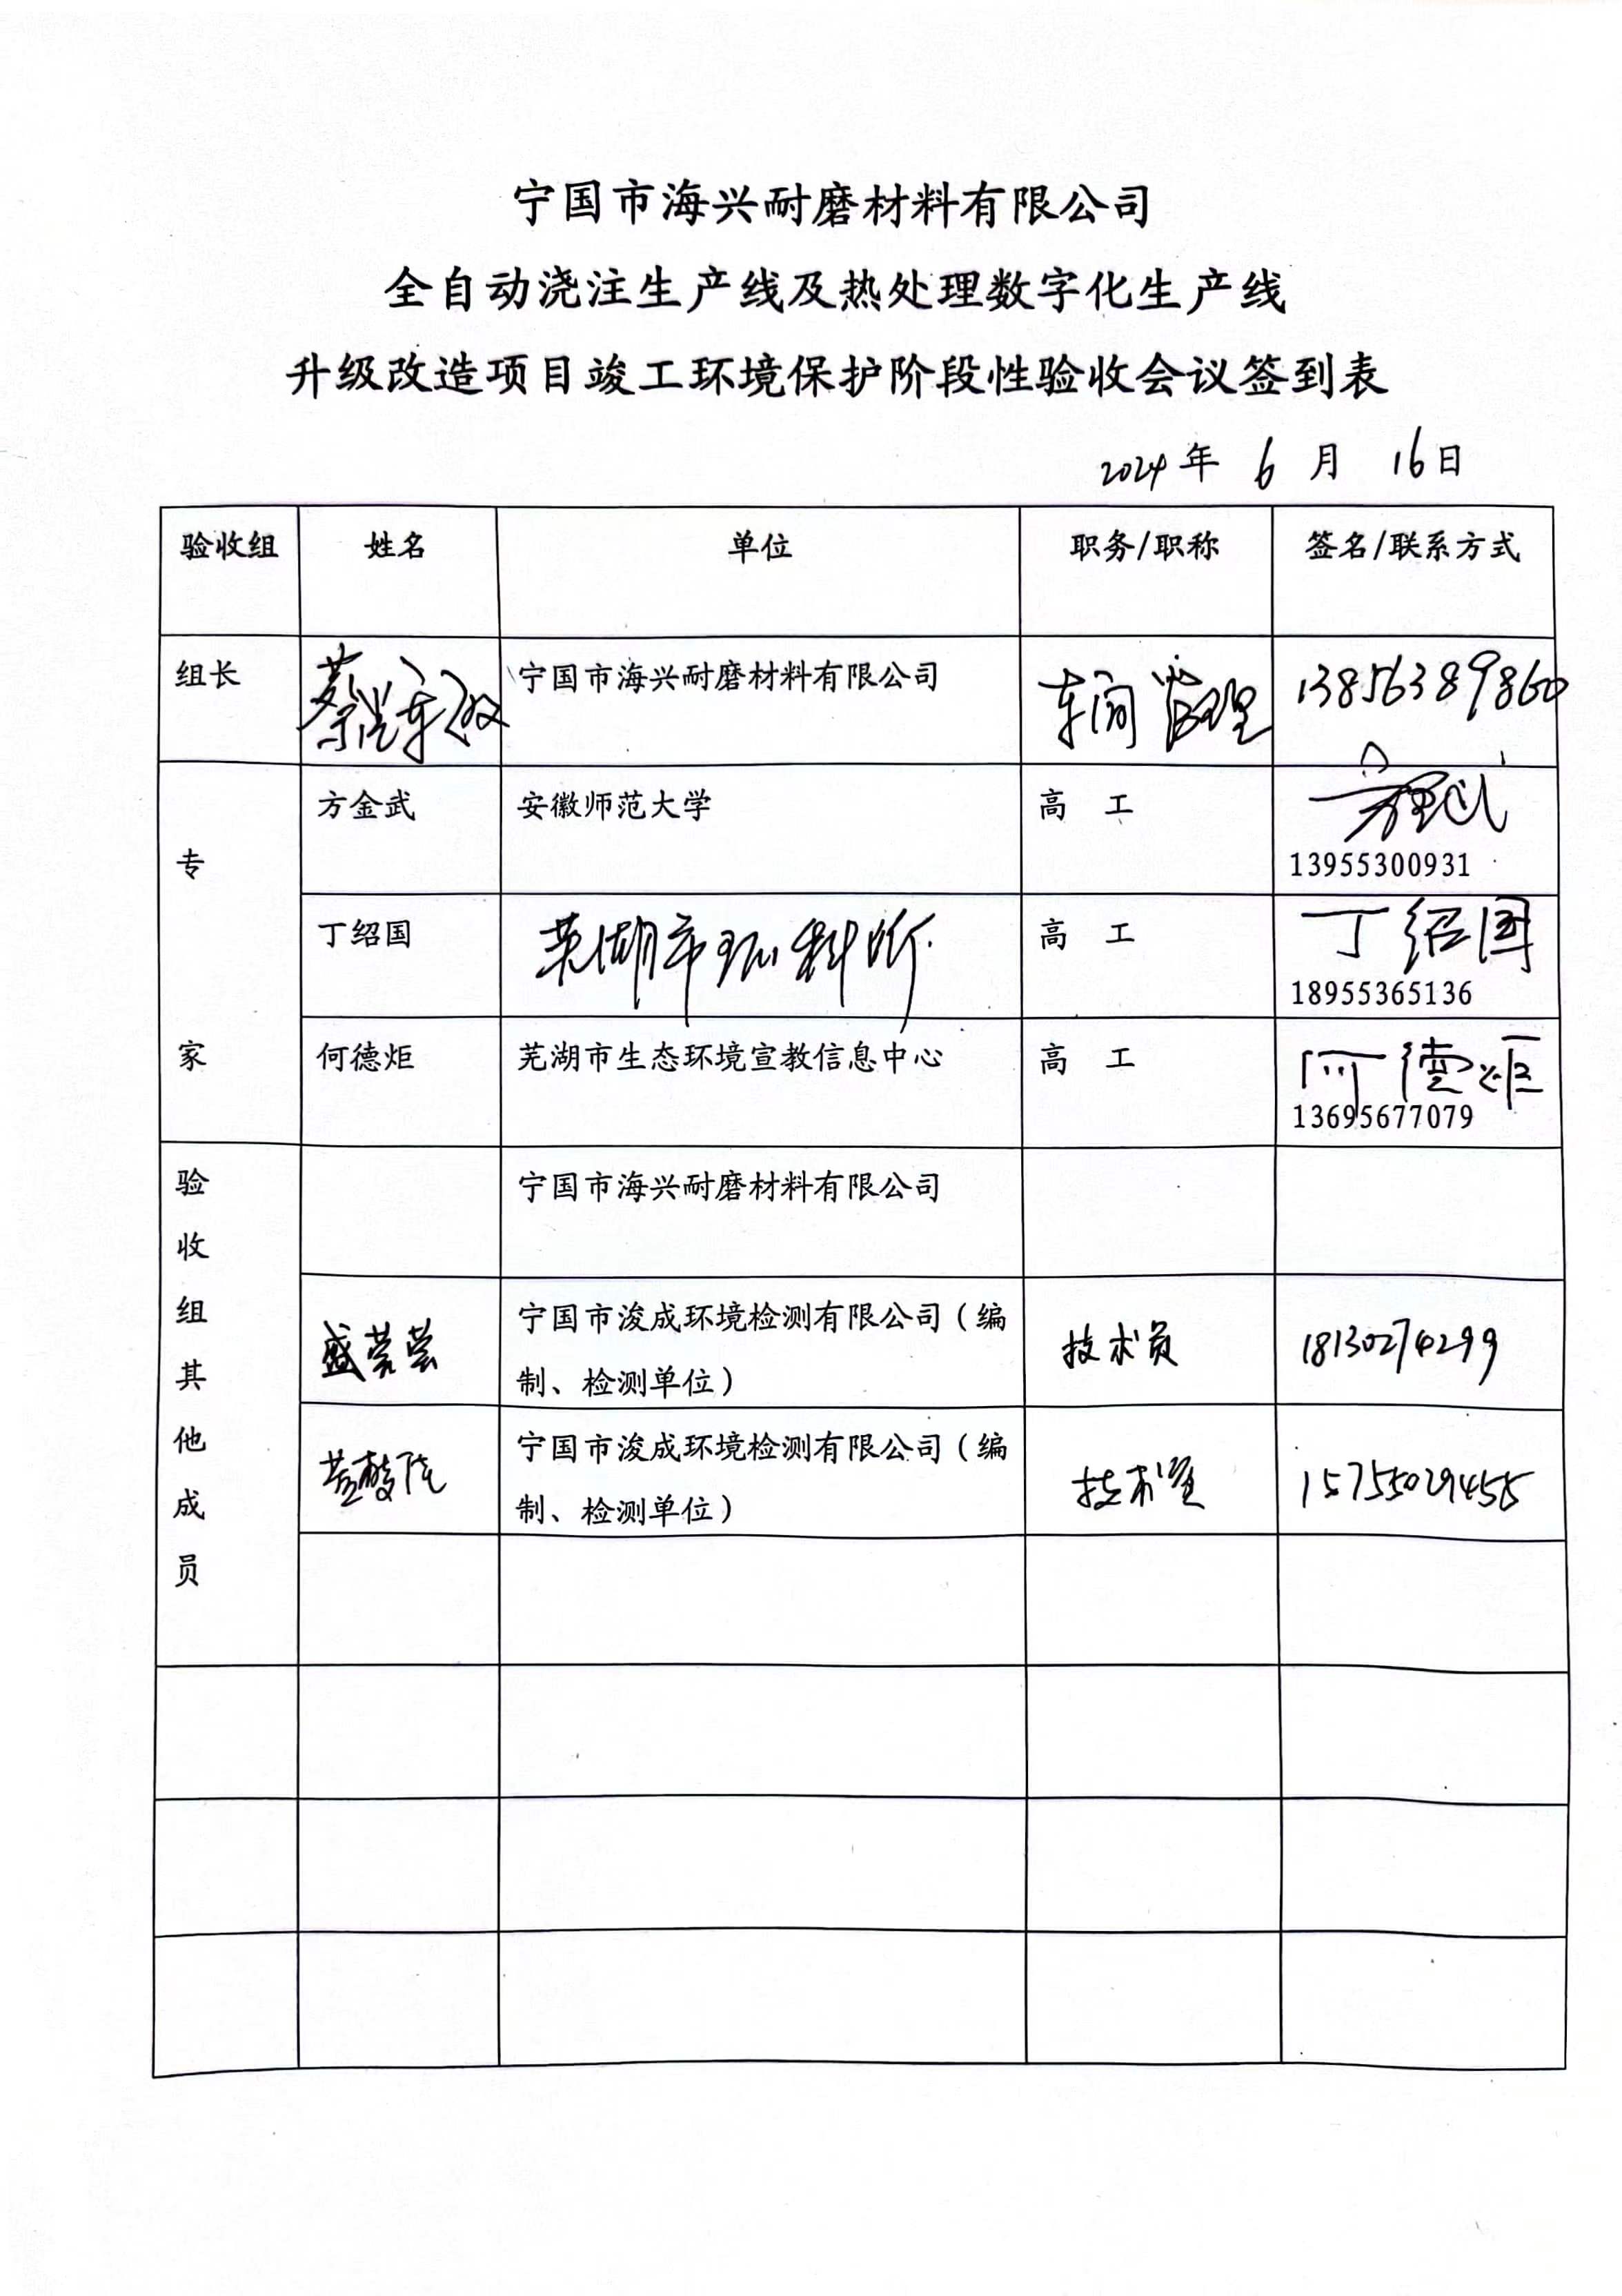 宁国市海兴耐磨材料有限公司
全自动浇注生产线及热处理数字化生产线
升级改造项目竣工环境保护阶段性验收会议签到表
2024年 6 月 16日
验收组 姓名 单位 职务/职称 签名/联系方式
组长 宁国市海兴耐磨材料有限公司 车间管理 13856389860
专
方金武 安徽师范大学 高 工
13955300931
丁绍国 芜湖市环科所 高 工 丁绍国
18955365136
家
何德炬 芜湖市生态环境宣教信息中心 高 工 何德炬
13695677079
验
收
组
其
他
成
员
宁国市海兴耐磨材料有限公司
盛芸芸 宁国市浚成环境检测有限公司（编
制、检测单位） 技术员 18130274299
宁国市浚成环境检测有限公司（编
制、检测单位） 技术员 15755029455